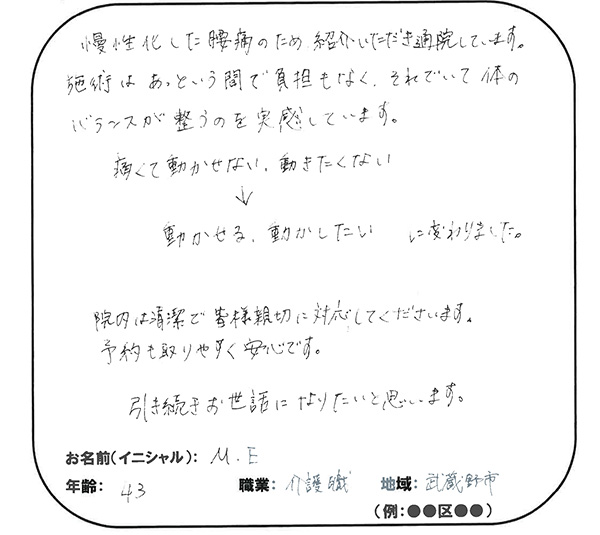 慢性化した腰痛のため紹介いただき通院しています。
施術はあっという間で負担もなく、それでいて体の
バランスが整うのを実感しています。
痛くて動かせない、動きたくない
↓
動かせる、動かしたい に変わりました。
院内は清潔で皆様親切に対応してくださいます。
予約も取りやすく安心です。
引き続きお世話になりたいと思います。
お名前(イニシャル): M.E
年齢: 43 職業: 介護職 地域: 武蔵野市
(例:●●区●●)